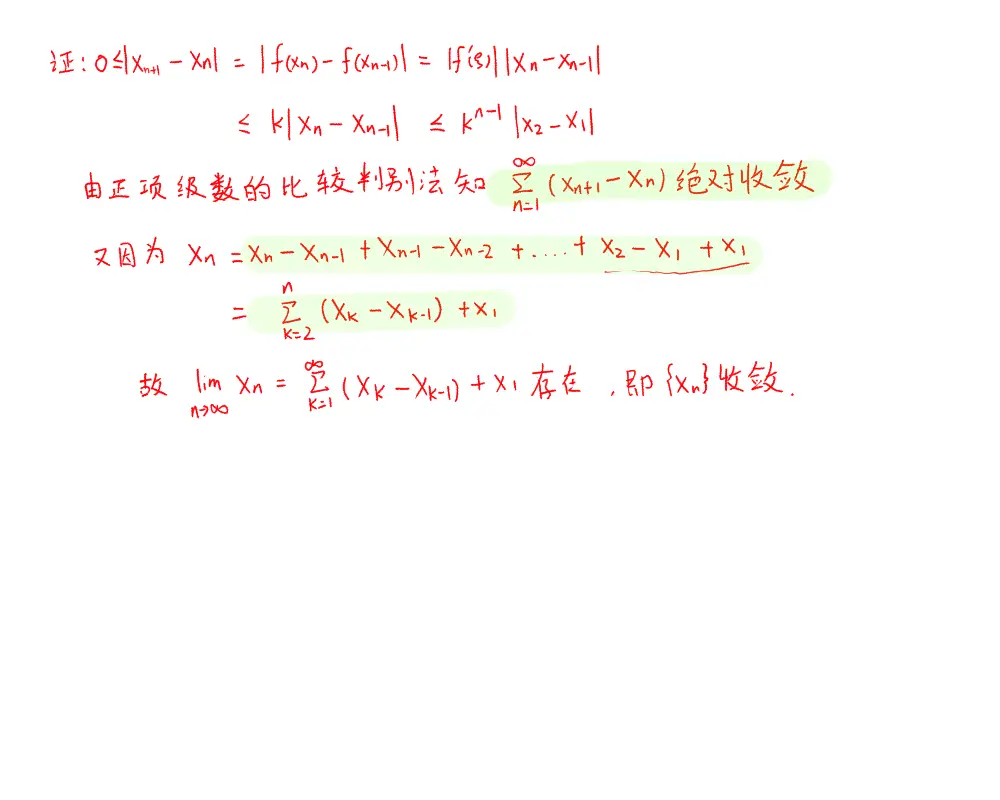 证: 0≤|x_{n+1} - x_n| = |f(x_n) - f(x_{n-1})| = |f'(ξ)||x_n - x_{n-1}|
≤ k|x_n - x_{n-1}| ≤ k^{n-1} |x_2 - x_1|
由正项级数的比较判别法知 \sum_{n=1}^{∞} (x_{n+1} - x_n) 绝对收敛
又因为 x_n = x_n - x_{n-1} + x_{n-1} - x_{n-2} + .... + x_2 - x_1 + x_1
= \sum_{k=2}^{n} (x_k - x_{k-1}) + x_1
故 \lim_{n→∞} x_n = \sum_{k=1}^{∞} (x_k - x_{k-1}) + x_1 存在, 即{x_n}收敛.